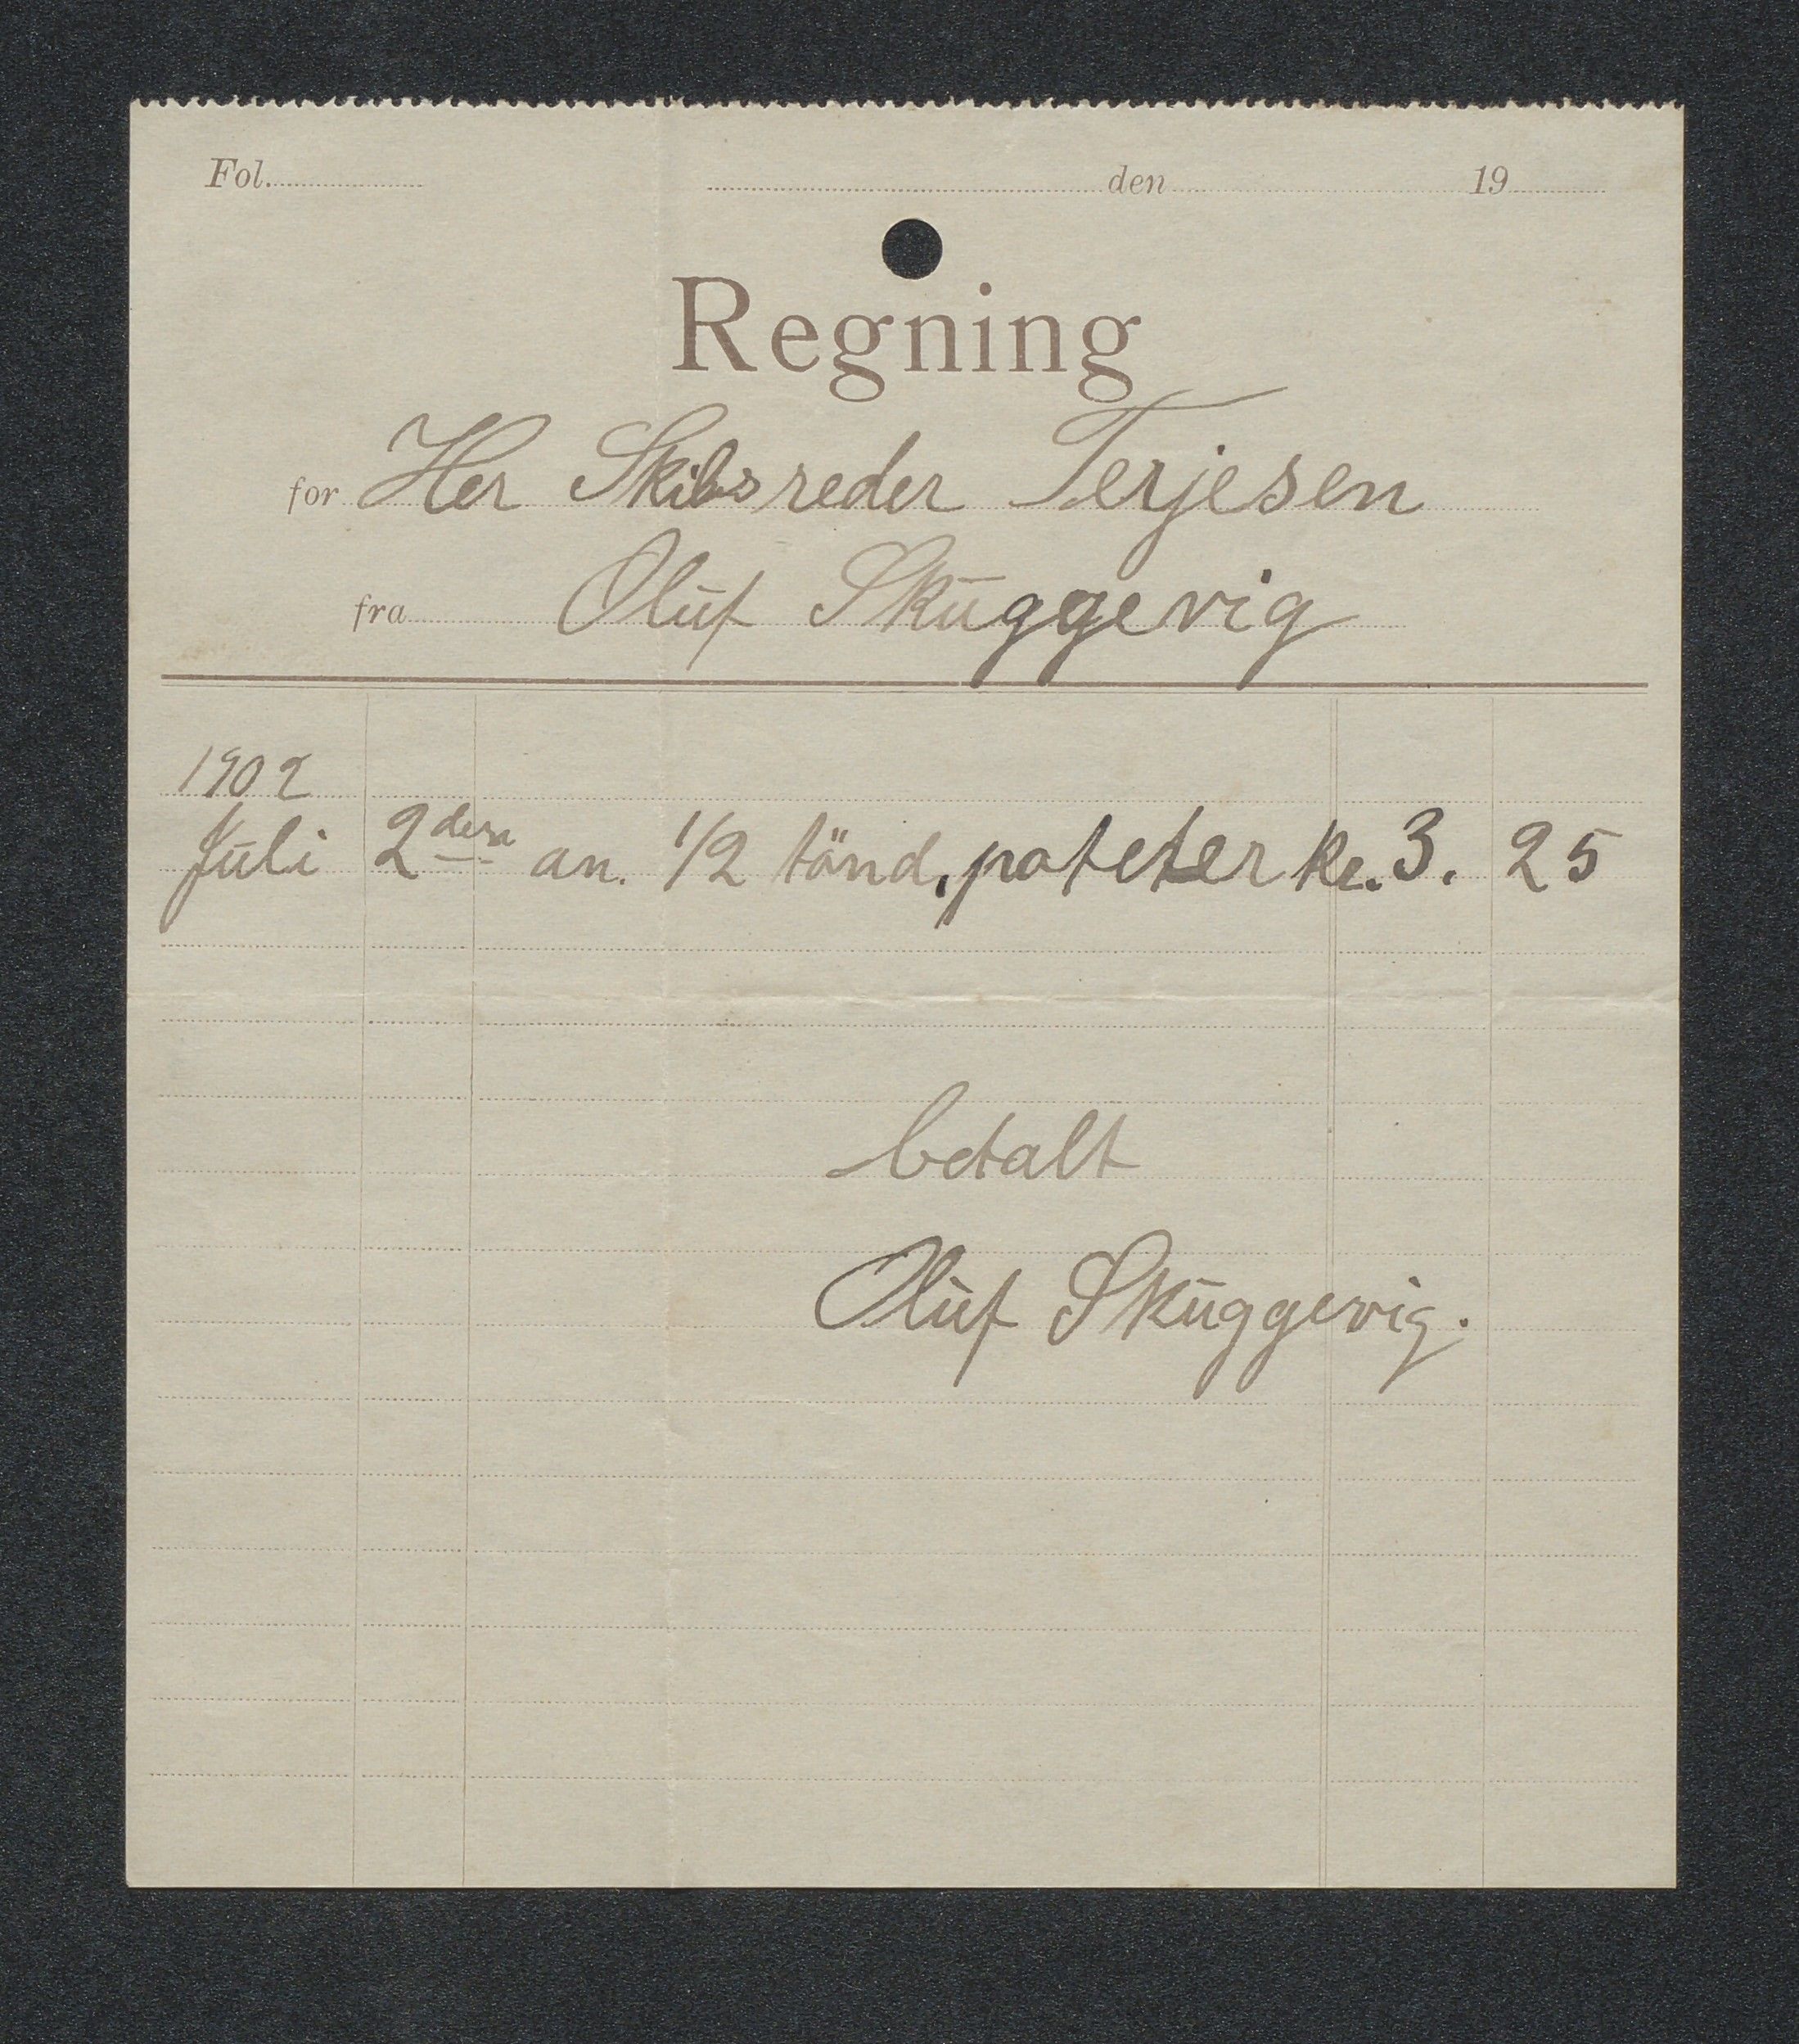 Fol. den 19
Regning
for Her Skibsreder Terjesen
fra Oluf Skuggevig
1902
Juli 2den an. 1/2 tönd. poteter kr. 3. 25
betalt
Oluf Skuggevig.